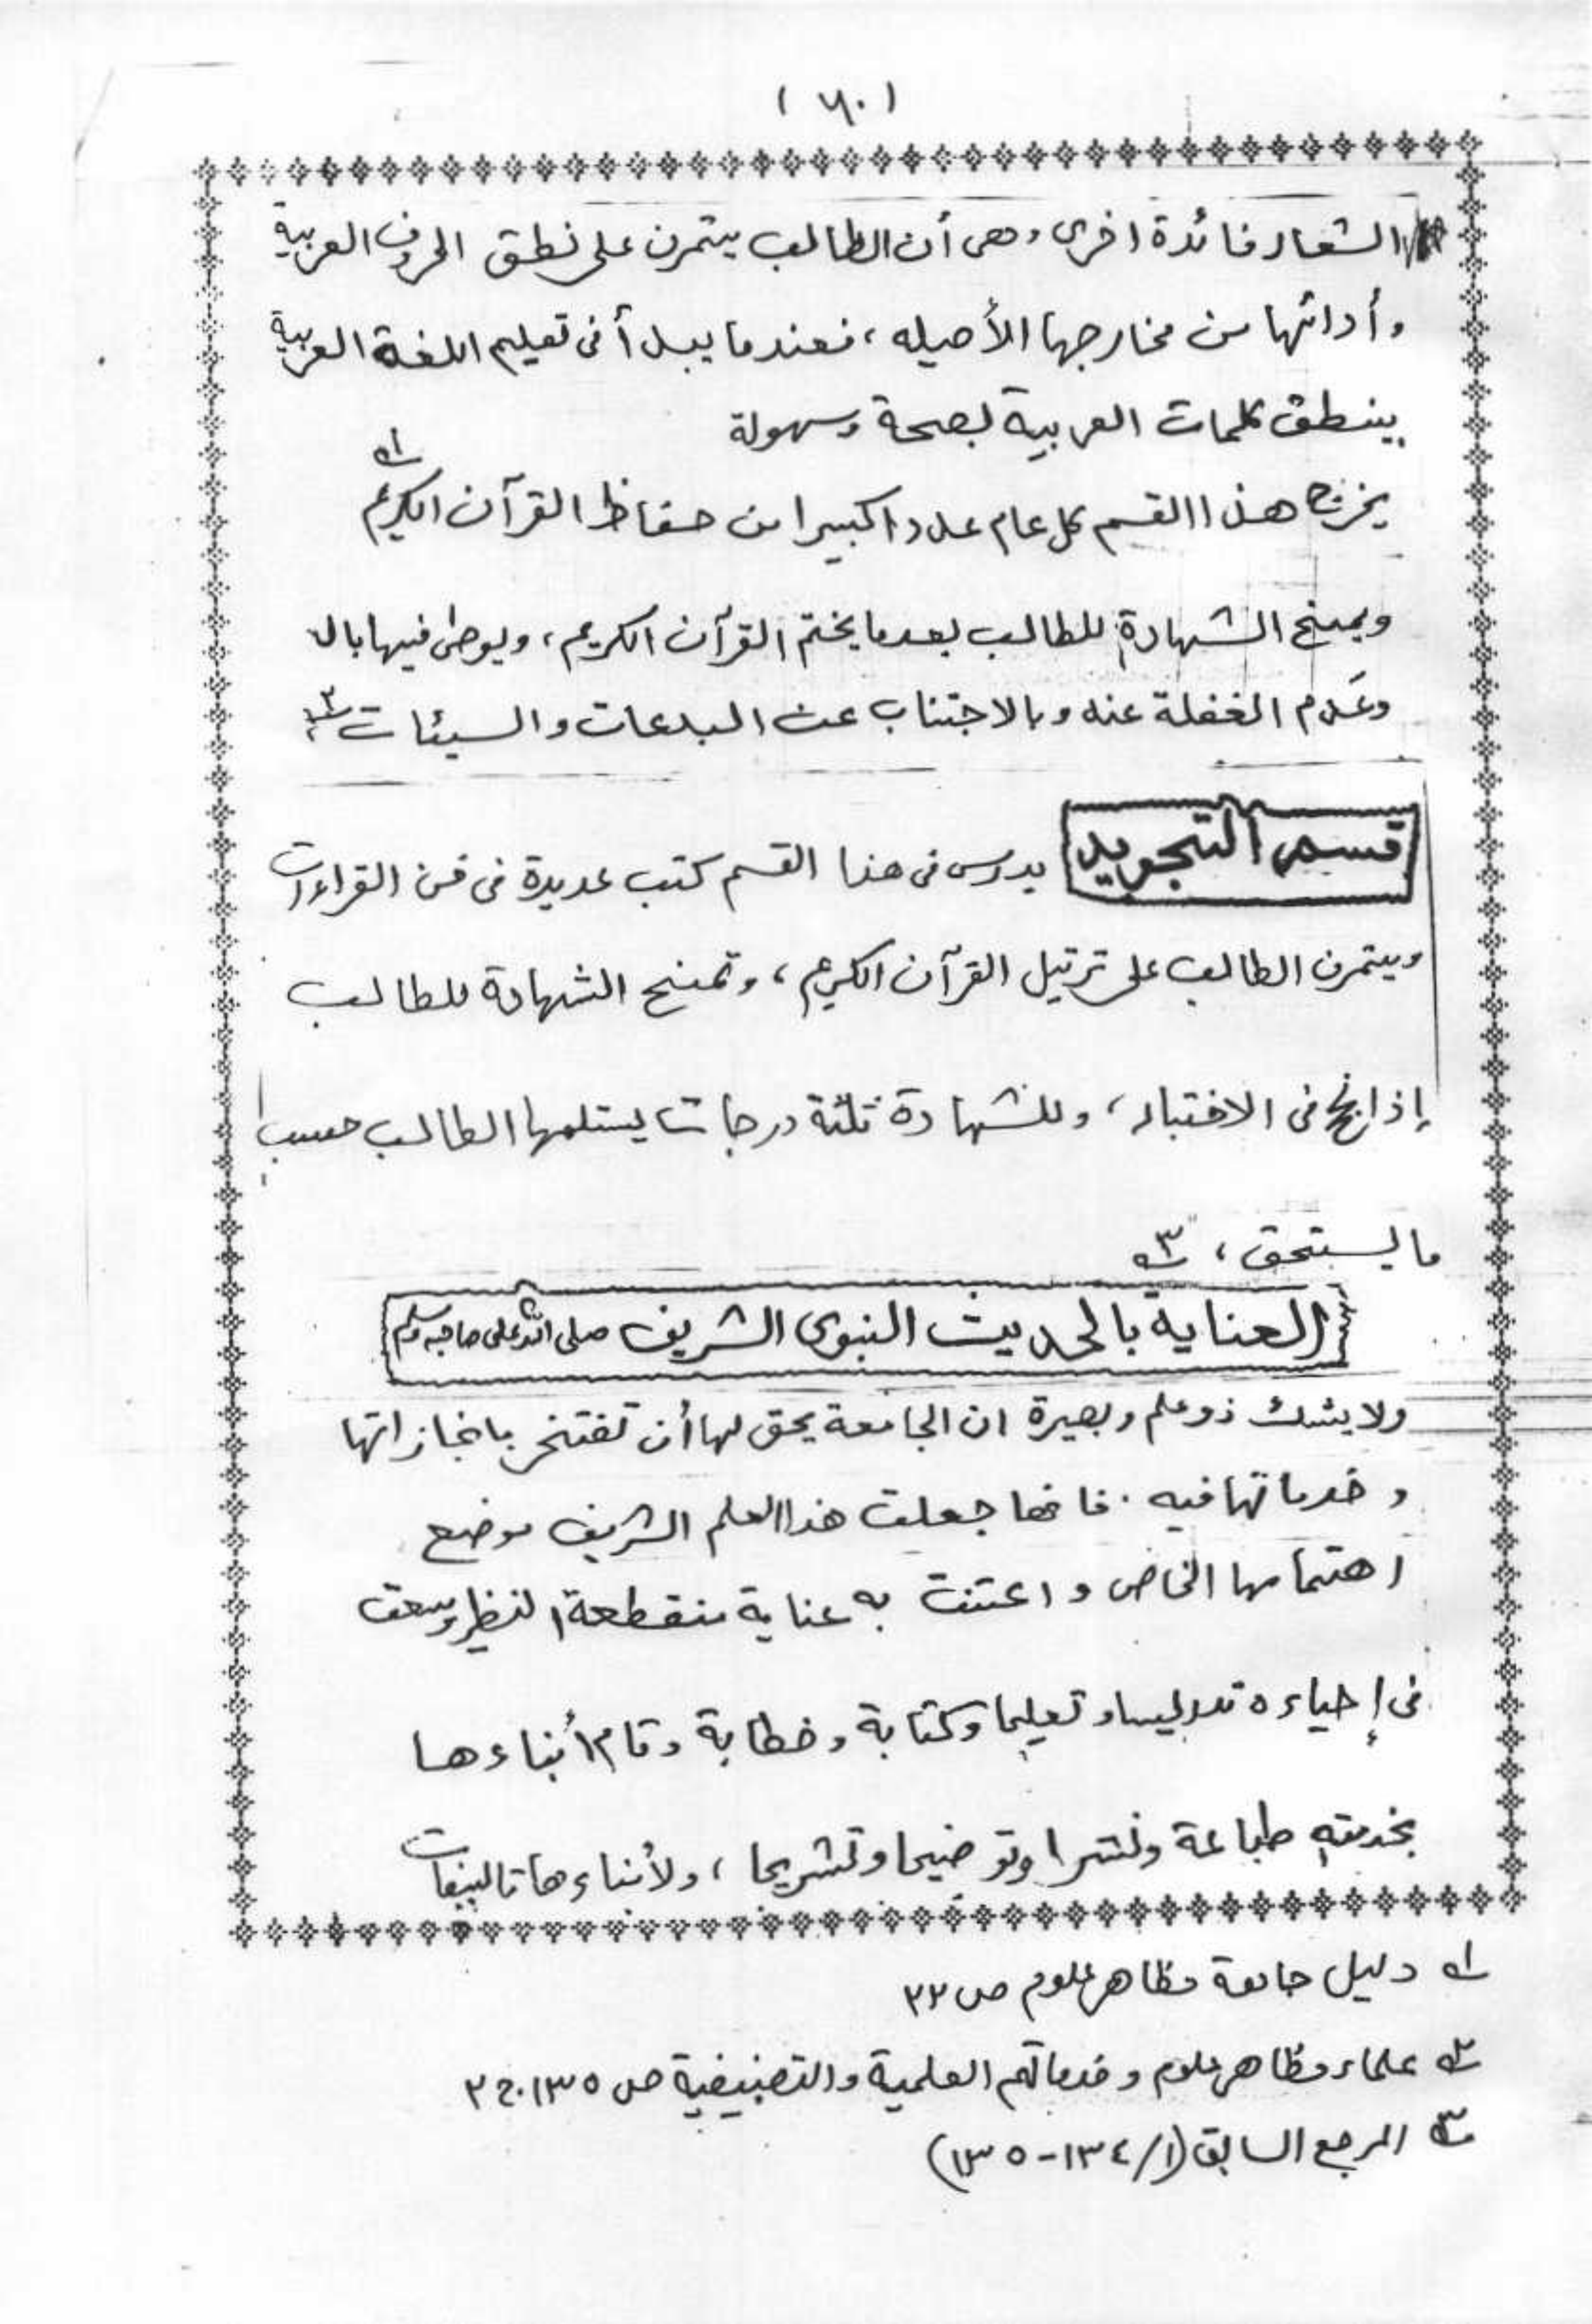 (٦٠)
الشعار فائدة اخرى وهى أن الطالب يتمرن على نطق الحروف العربية
وأدائها من مخارجها الأصيله، فعندما يبدأ فى تعليم اللغة العربية
ينطق كلمات العربية بصحة وسهولة
يخرج هذا القسم كل عام عددا كبيرا من حفاظ القرآن الكريم ١
ويمنح الشهادة للطالب بعد ما يختم القرآن الكريم، ويوصى فيها بال
وعَدم الغفلة عنه وبالاجتناب عن البدعات والسيئات ٢
قسم التجويد يدرس فى هذا القسم كتب عديدة فى فن القراءات
ويتمرن الطالب على ترتيل القرآن الكريم، وتمنح الشهادة للطالب
إذا نجح فى الاختبار، وللشهادة ثلثة درجات يستلمها الطالب حسب
ما يستحق، ٣
العناية بالحديث النبوى الشريف صلى الله على صاحبه وسلم
ولا يشك ذو علم وبصيرة ان الجامعة يحق لها أن تفتخر بانجازاتها
وخدماتها فيه. فانها جعلت هذا العلم الشريف موضع
اهتمامها الخاص واعتنت به عناية منقطعة النظير وسعت
فى إحياءه تدريسا وتعليما وكتابة وخطابة وقام أبناءها
بخدمته طباعة ونشرا وتوضيحا وتشريحا، ولأبناءها تاليفات
١ دليل جامعة مظاهر علوم ص ٢٢
٢ علماء مظاهر علوم وخدماتهم العلمية والتصنيفية ص ١٣٥ ج ٢
٣ المرجع السابق (١/١٣٤-١٣٥)